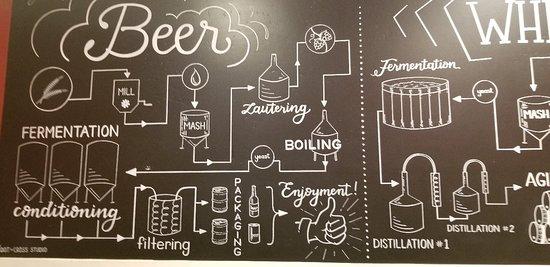 Beer
MILL
MASH
Lautering
BOILING
yeast
FERMENTATION
conditioning
filtering
PACKAGING
Enjoyment!
WH
Fermentation
yeast
MASH
DISTILLATION #1
DISTILLATION #2
AGI
CROSS STUDIO